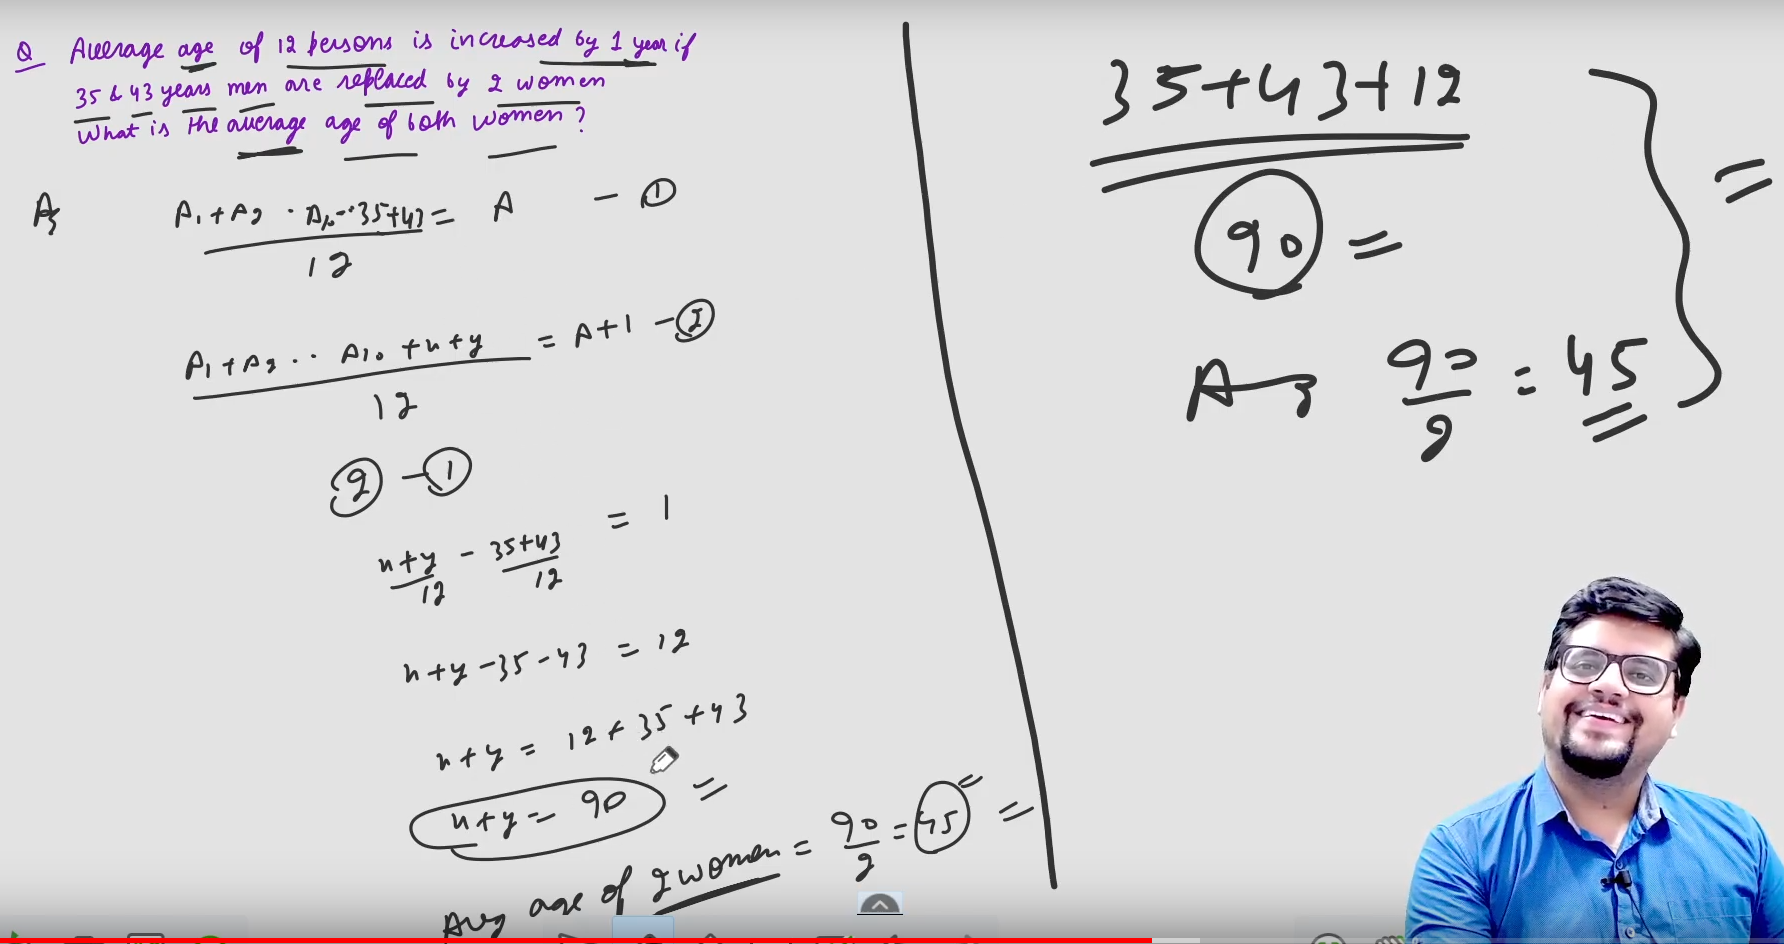 Q Average age of 12 persons is increased by 1 year if
35 & 43 years men are replaced by 2 women
What is the average age of both women?
A₁ + A₂ · A₁₀ -- 35+43 = A - ①
12
A₁ + A₂ ·· A₁₀ + x + y = A+1 - ②
12
② - ①
x+y - 35+43 = 1
12 12
x + y - 35 - 43 = 12
x + y = 12 + 35 + 43
x + y = 90 =
Avg age of 2 women = 90 = 45 =
2
35+43+12
90 =
90 = 45
2
=